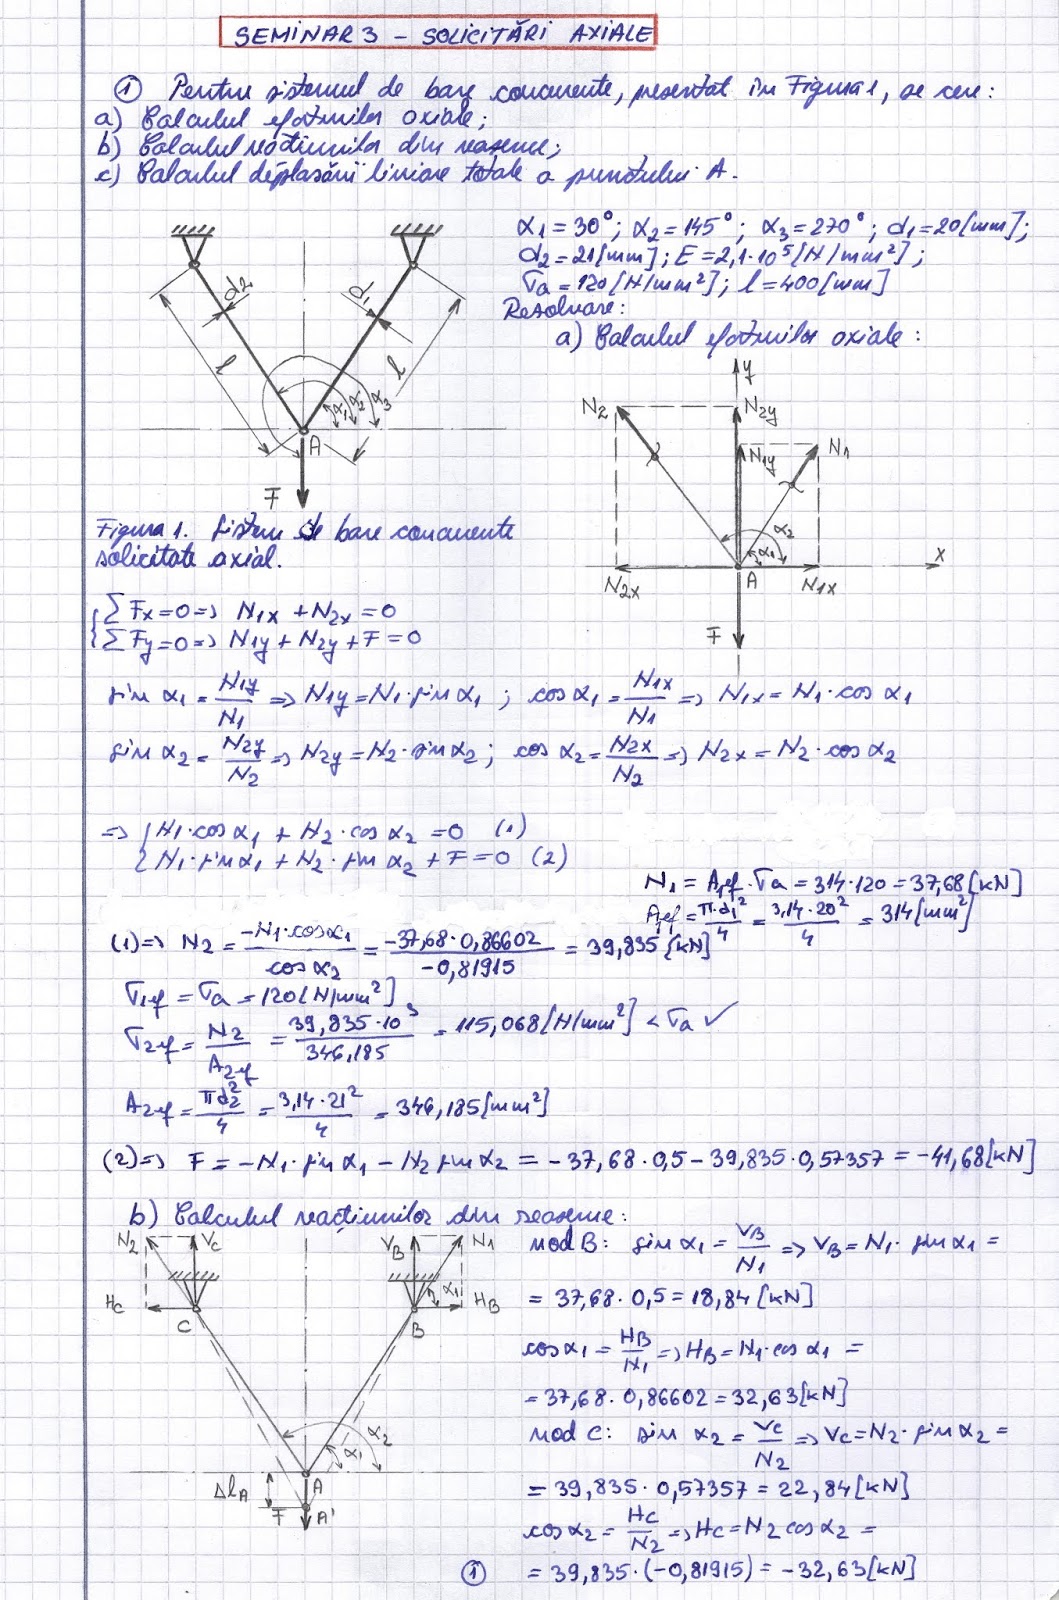 SEMINAR 3 – SOLICITĂRI AXIALE
① Pentru sistemul de bare concurente, prezentat în Figura 1, se cere:
a) Calculul eforturilor axiale;
b) Calculul reacțiunilor din reazeme;
c) Calculul deplasării liniare totale a punctului A.
α1 = 30°; α2 = 145°; α3 = 270°; d1 = 20[mm];
d2 = 21[mm]; E = 2,1·10^5[N/mm²];
σa = 120[N/mm²]; l = 400[mm]
Rezolvare:
a) Calculul eforturilor axiale:
d2 d1
l l
α1 α2 α3
A
F
y
N2 N2y
N1y N1
α2
α1
A x
N2x N1x
F
Figura 1. Sistem de bare concurente
solicitate axial.
{ ΣFx=0 => N1x + N2x = 0
{ ΣFy=0 => N1y + N2y + F = 0
sin α1 = N1y/N1 => N1y = N1·sin α1 ; cos α1 = N1x/N1 => N1x = N1·cos α1
sin α2 = N2y/N2 => N2y = N2·sin α2 ; cos α2 = N2x/N2 => N2x = N2·cos α2
=> { N1·cos α1 + N2·cos α2 = 0 (1)
{ N1·sin α1 + N2·sin α2 + F = 0 (2)
N1 = A1ef·σa = 314·120 = 37,68[kN]
A1ef = π·d1²/4 = 3,14·20²/4 = 314[mm²]
(1) => N2 = -N1·cos α1/cos α2 = -37,68·0,86602/-0,81915 = 39,835[kN]
σ1ef = σa = 120[N/mm²]
σ2ef = N2/A2ef = 39,835·10³/346,185 = 115,068[N/mm²] < σa ✓
A2ef = πd2²/4 = 3,14·21²/4 = 346,185[mm²]
(2) => F = -N1·sin α1 - N2 sin α2 = -37,68·0,5 - 39,835·0,57357 = -41,68[kN]
b) Calculul reacțiunilor din reazeme:
N2 VC VB N1
α1
HC HB
C B
α2
α1
ΔlA A
F A'
nod B: sin α1 = VB/N1 => VB = N1·sin α1 =
= 37,68·0,5 = 18,84[kN]
cos α1 = HB/N1 => HB = N1·cos α1 =
= 37,68·0,86602 = 32,63[kN]
nod C: sin α2 = VC/N2 => VC = N2·sin α2 =
= 39,835·0,57357 = 22,84[kN]
cos α2 = HC/N2 => HC = N2 cos α2 =
= 39,835·(-0,81915) = -32,63[kN]
①